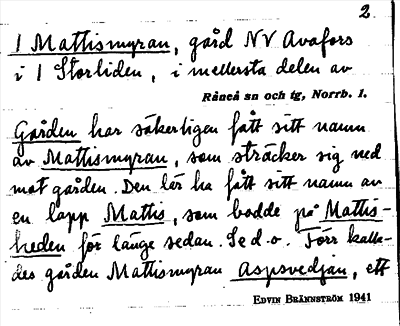 2.
1 Mattismyran, gård NV Avafors
i 1 Storliden, i mellersta delen av
Råneå sn och tg, Norrb. l.
Gården har säkerligen fått sitt namn
av Mattismyran, som sträcker sig ned
mot gården. Den lär ha fått sitt namn av
en lapp Mattis, som bodde på Mattis-
heden för länge sedan. Se d. o. Förr kalla-
des gården Mattismyran Aspsvedjan, ett
EDVIN BRÄNNSTRÖM 1941